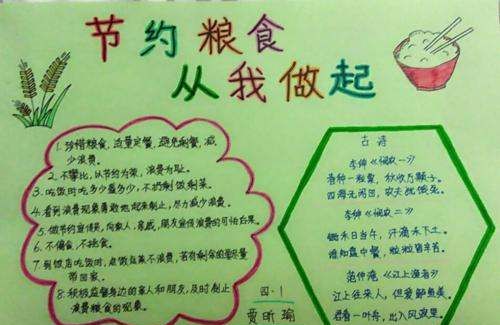 节约粮食
从我做起
1.珍惜粮食，适量定餐，避免剩餐，减
少浪费。
2.不攀比，以节约为荣，浪费为耻。
3.吃饭时吃多少盛多少，不扔剩饭剩菜。
4.看到浪费现象勇敢地起来制止，尽力减少浪费。
5.做节约宣传员，向家人、亲戚、朋友宣传浪费的可怕后果。
6.不偏食，不挑食。
7.到饭店吃饭时，点饭点菜不浪费，若有剩余的要尽量
带回家。
8.积极监督身边的亲人和朋友，及时制止
浪费粮食的现象。
四·1
贾昕瑜
古诗
李绅《悯农一》
春种一粒粟，秋收万颗子。
四海无闲田，农夫犹饿死。
李绅《悯农二》
锄禾日当午，汗滴禾下土。
谁知盘中餐，粒粒皆辛苦。
范仲淹《江上渔者》
江上往来人，但爱鲈鱼美。
君看一叶舟，出入风波里。